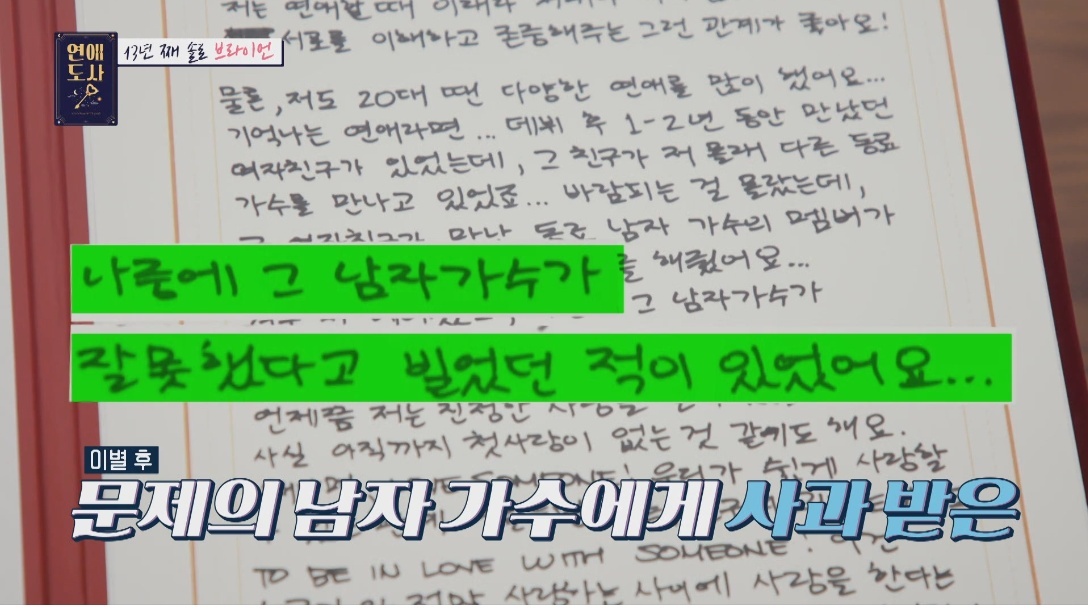 저는 연애할 때
서로를 이해하고 존중해주는 그런 관계가 좋아요!
연애
도사
13년 째 솔로 브라이언
물론, 저도 20대 땐 다양한 연애를 많이 했어요...
기억나는 연애라면... 데뷔 후 1-2년 동안 만났던
여자친구가 있었는데, 그 친구가 저 몰래 다른 동료
가수를 만나고 있었죠... 바람피는 걸 몰랐는데,
그 여자친구가 만난 동료 남자 가수의 멤버가
를 해줬어요...
나중에 그 남자가수가
그 남자가수가
잘못했다고 빌었던 적이 있었어요...
언제쯤 저는 진정한 사랑을
사실 아직까지 첫사랑이 없는 것 같기도 해요.
우리가 쉽게 사랑할
이별 후
문제의 남자 가수에게 사과 받은
TO BE IN LOVE WITH SOMEONE!
정말 사랑하는 사이에 사랑을 한다는